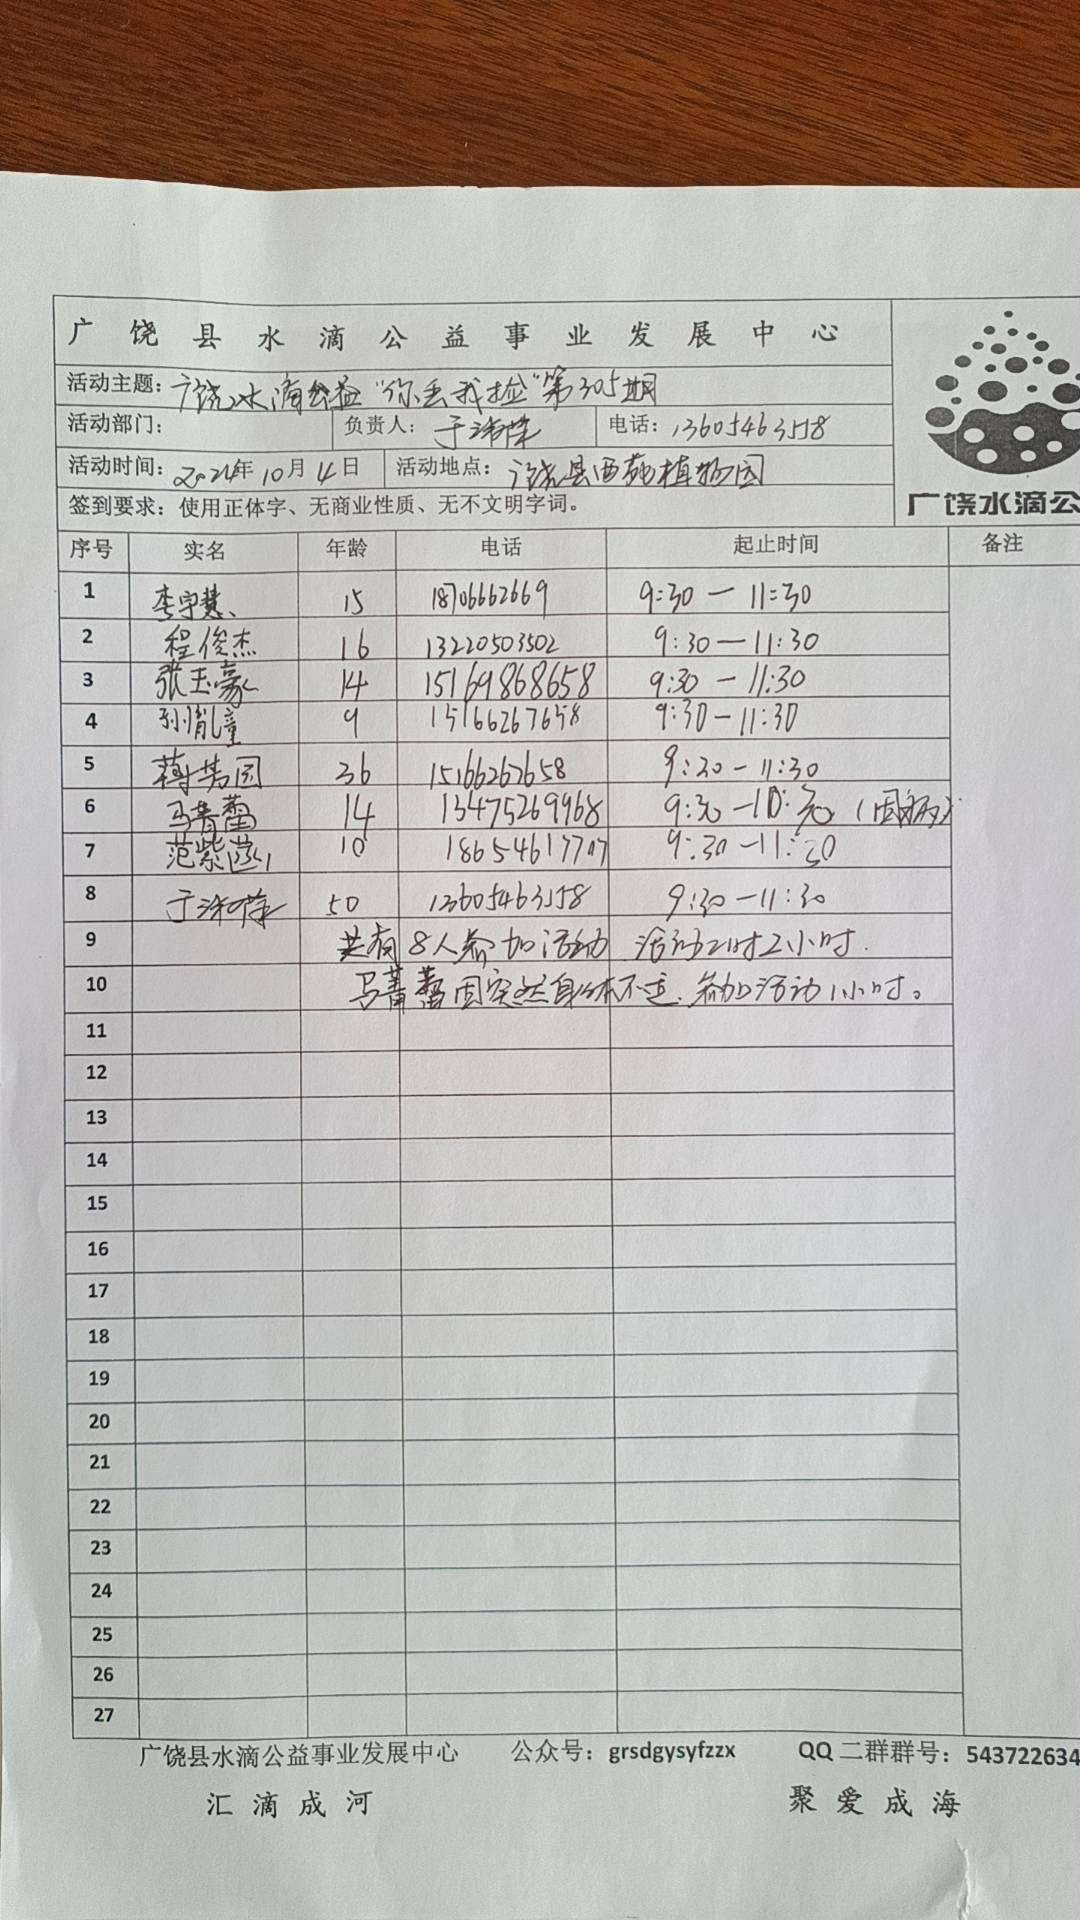 广饶县水滴公益事业发展中心
活动主题：广饶水滴公益“你丢我捡”第305期
活动部门： 负责人：于 电话：13605463158
活动时间：2024年10月4日 活动地点：广饶县西苑植物园
签到要求：使用正体字、无商业性质、无不文明字词。
广饶水滴公
序号 实名 年龄 电话 起止时间 备注
1 李宇慧 15 18706662669 9:30—11:30
2 程俊杰 16 13220503502 9:30—11:30
3 张玉豪 14 15169868658 9:30—11:30
4 孙胤童 9 15166267658 9:30—11:30
5 36 15166267658 9:30—11:30
6 马菁蕾 14 13475269968 9:30—10:30（因病）
7 范紫涵 10 18654617707 9:30—11:30
8 于 50 13605463158 9:30—11:30
9 共有8人参加活动 活动2小时.
10 马菁蕾因突然身体不适，参加活动1小时。
11
12
13
14
15
16
17
18
19
20
21
22
23
24
25
26
27
广饶县水滴公益事业发展中心 公众号：grsdgysyfzzx QQ二群群号：543722634
汇滴成河 聚爱成海